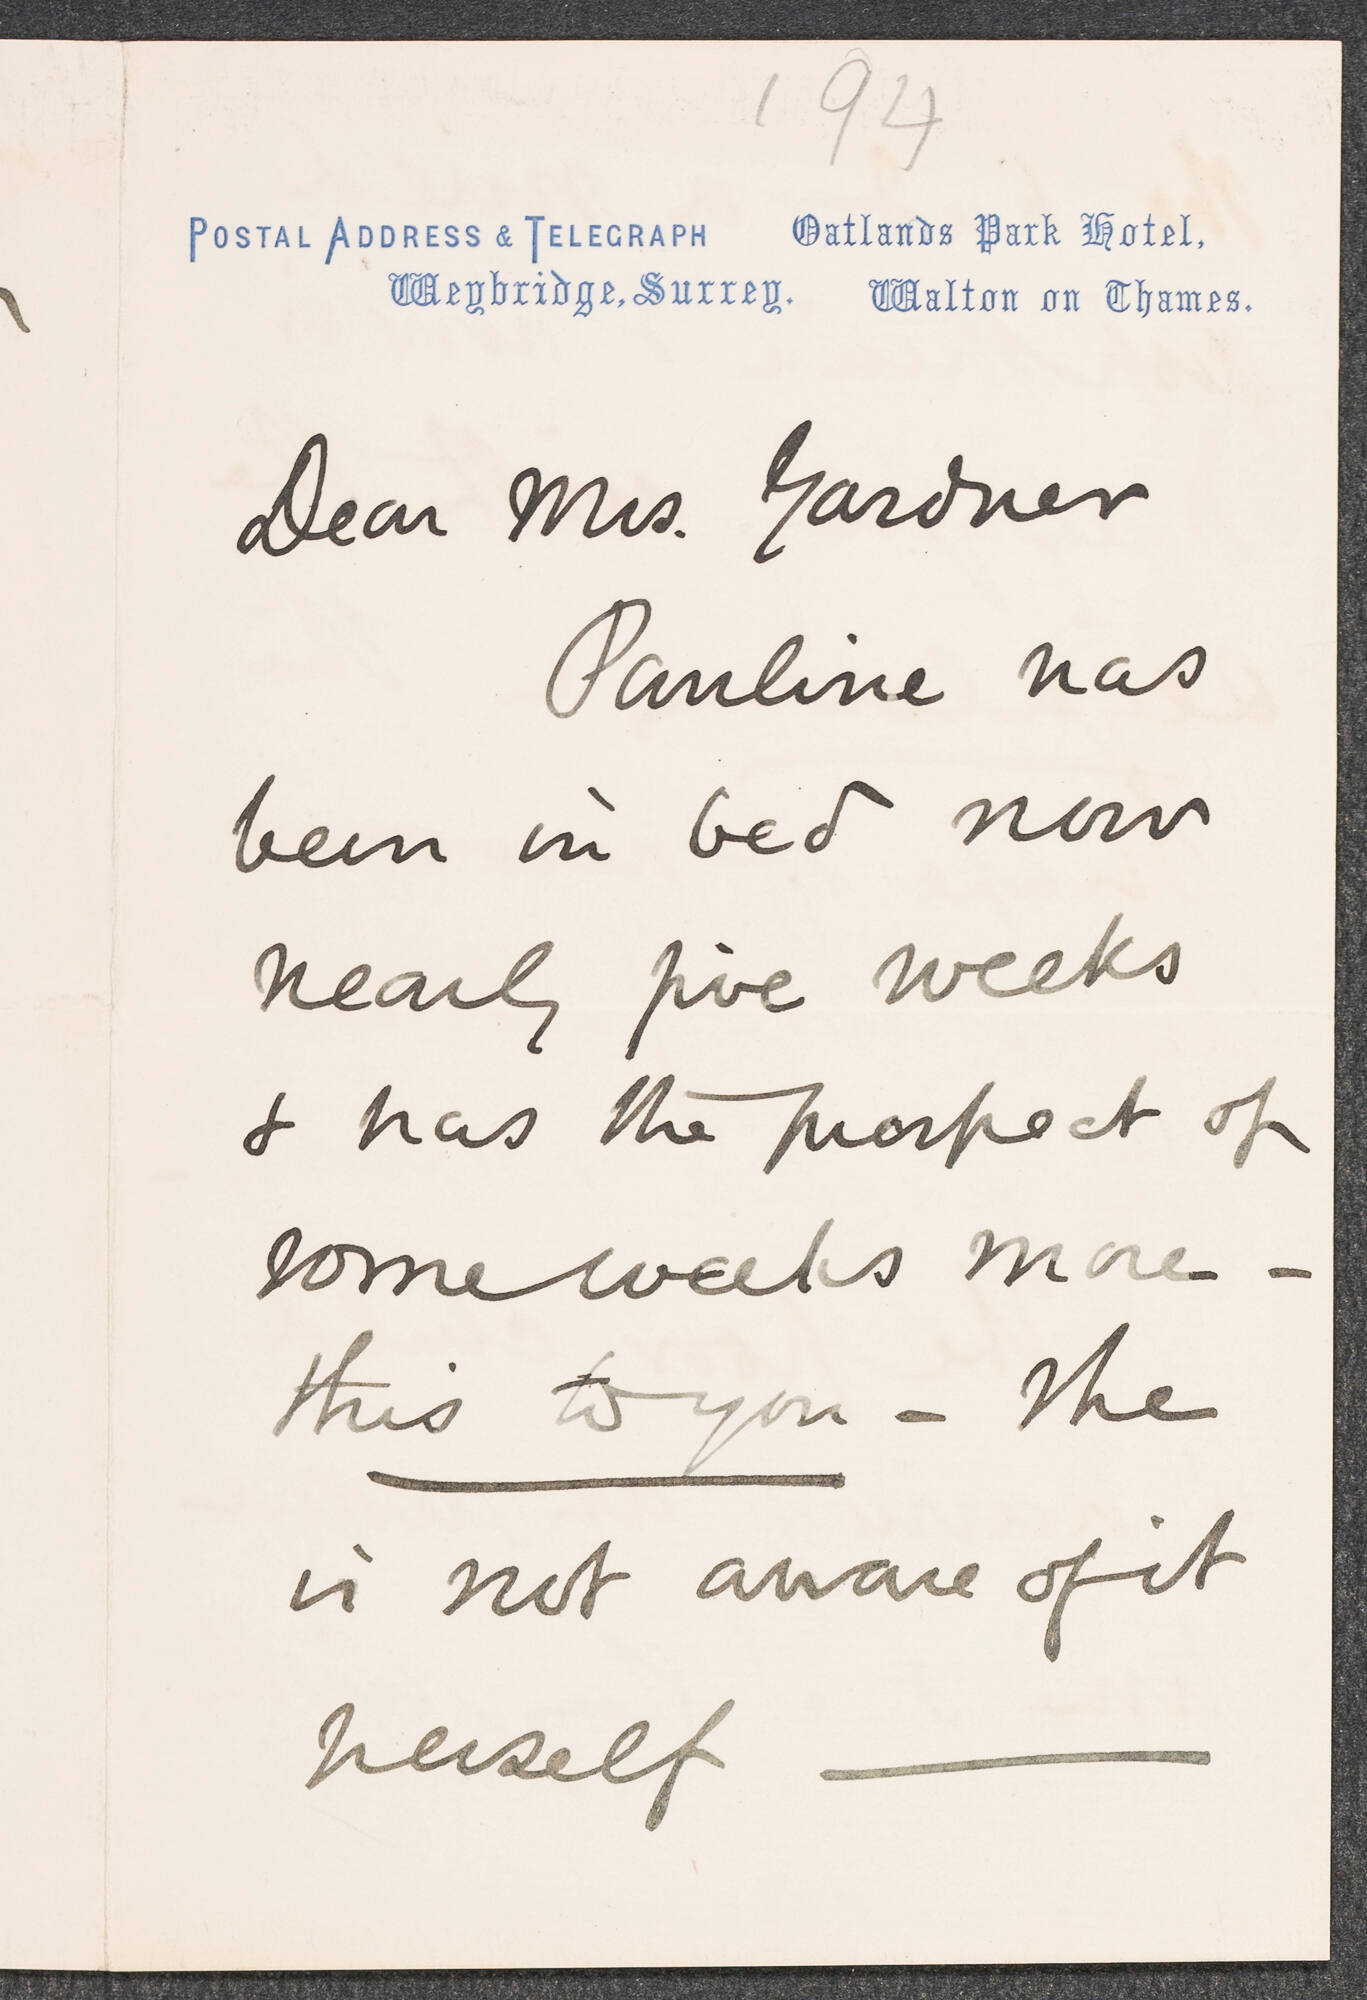 194
POSTAL ADDRESS & TELEGRAPH Oatlands Park Hotel,
Weybridge, Surrey. Walton on Thames.
Dear Mrs. Gardner
Pauline has
been in bed now
nearly five weeks
& has the prospect of
some weeks more -
this to you - She
is not aware of it
herself —